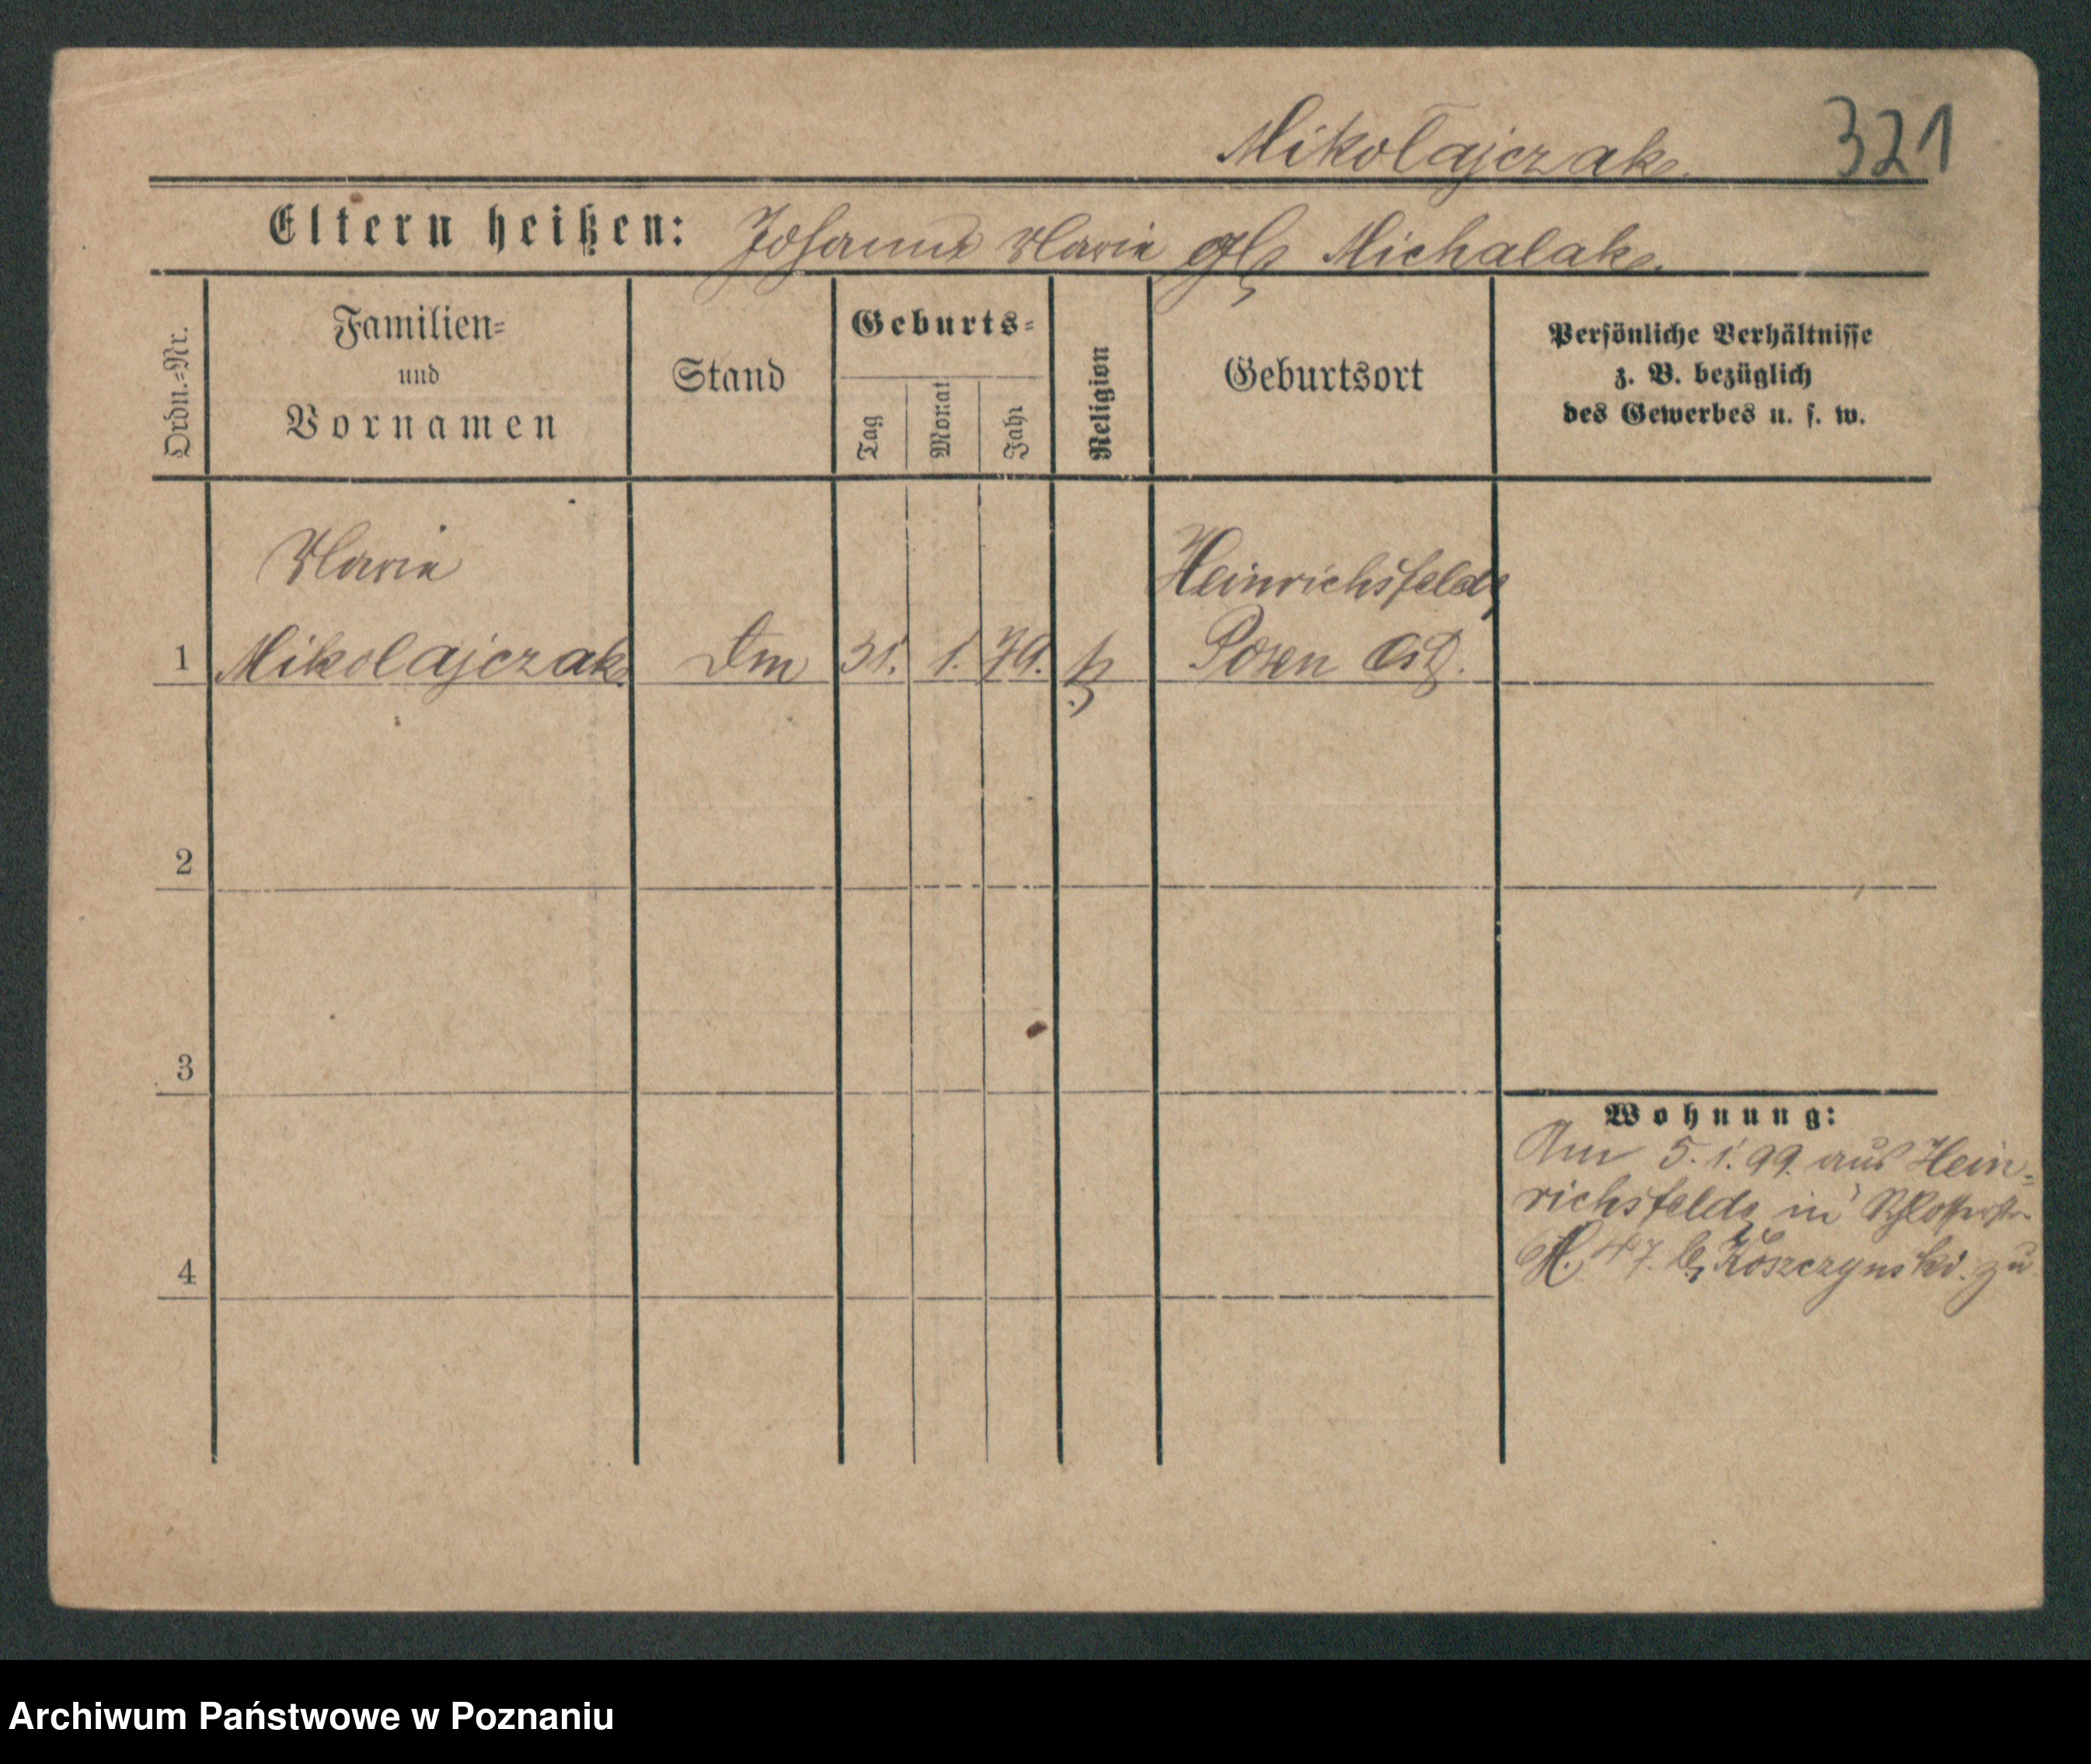 Mikolajczak.
321
Eltern heißen: Johann Marie Michalak.
Ordn.=Nr.
Familien=
und
Vornamen
Stand
Geburts=
Tag
Monat
Jahr
Religion
Geburtsort
Persönliche Verhältnisse
z. B. bezüglich
des Gewerbes u. s. w.
Marie
Heinrichsfelde
1 Mikolajczak 31. 1. 79. Posen Ost.
2
3
4
Wohnung:
Am 5. 1. 99. aus Hein=
richsfelde in Schlosserstr
47. b. Koszczynski. zu
Archiwum Państwowe w Poznaniu